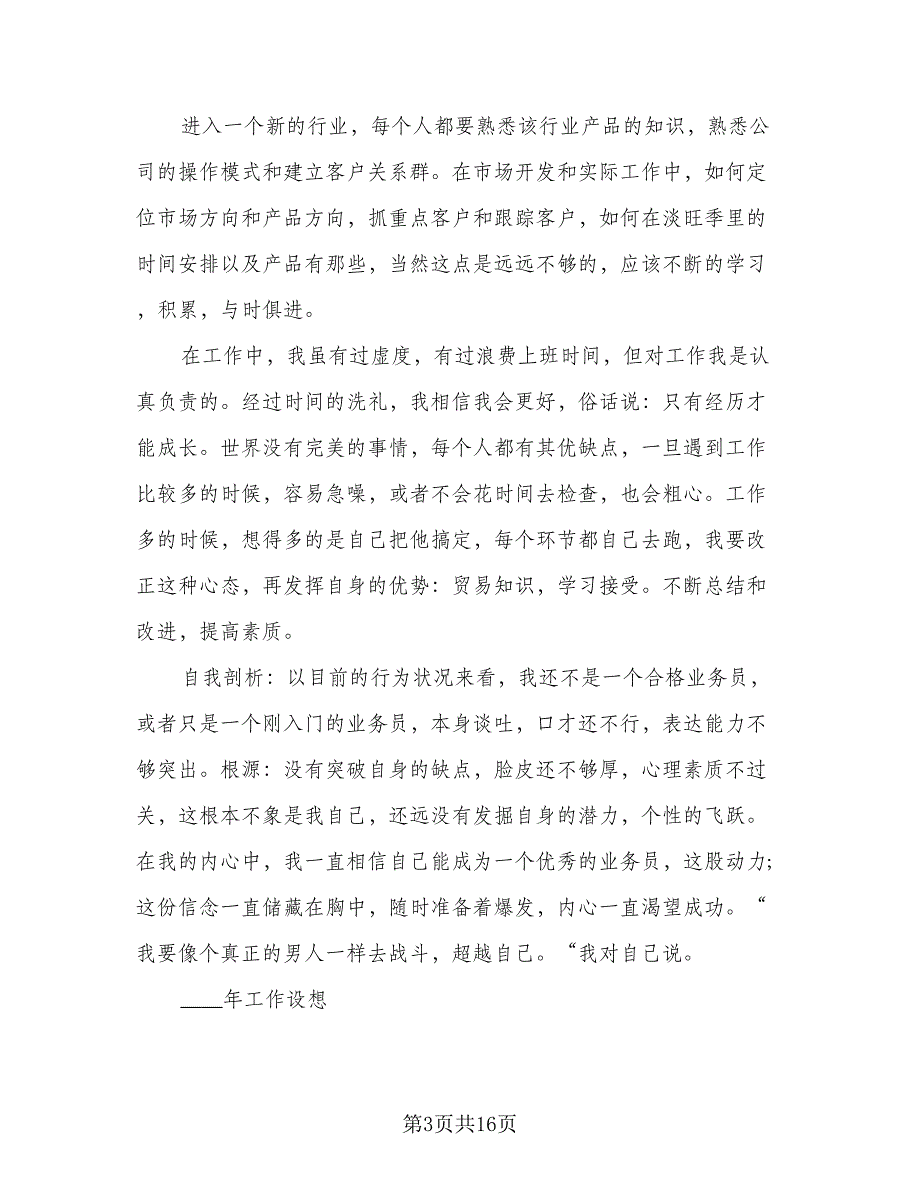 进入一个新的行业，每个人都要熟悉该行业产品的知识，熟悉公
司的操作模式和建立客户关系群。在市场开发和实际工作中，如何定
位市场方向和产品方向，抓重点客户和跟踪客户，如何在淡旺季里的
时间安排以及产品有那些，当然这点是远远不够的，应该不断的学习
，积累，与时俱进。
在工作中，我虽有过虚度，有过浪费上班时间，但对工作我是认
真负责的。经过时间的洗礼，我相信我会更好，俗话说：只有经历才
能成长。世界没有完美的事情，每个人都有其优缺点，一旦遇到工作
比较多的时候，容易急噪，或者不会花时间去检查，也会粗心。工作
多的时候，想得多的是自己把他搞定，每个环节都自己去跑，我要改
正这种心态，再发挥自身的优势：贸易知识，学习接受。不断总结和
改进，提高素质。
自我剖析：以目前的行为状况来看，我还不是一个合格业务员，
或者只是一个刚入门的业务员，本身谈吐，口才还不行，表达能力不
够突出。根源：没有突破自身的缺点，脸皮还不够厚，心理素质不过
关，这根本不象是我自己，还远没有发掘自身的潜力，个性的飞跃。
在我的内心中，我一直相信自己能成为一个优秀的业务员，这股动力;
这份信念一直储藏在胸中，随时准备着爆发，内心一直渴望成功。“
我要像个真正的男人一样去战斗，超越自己。“我对自己说。
____年工作设想
第3页共16页